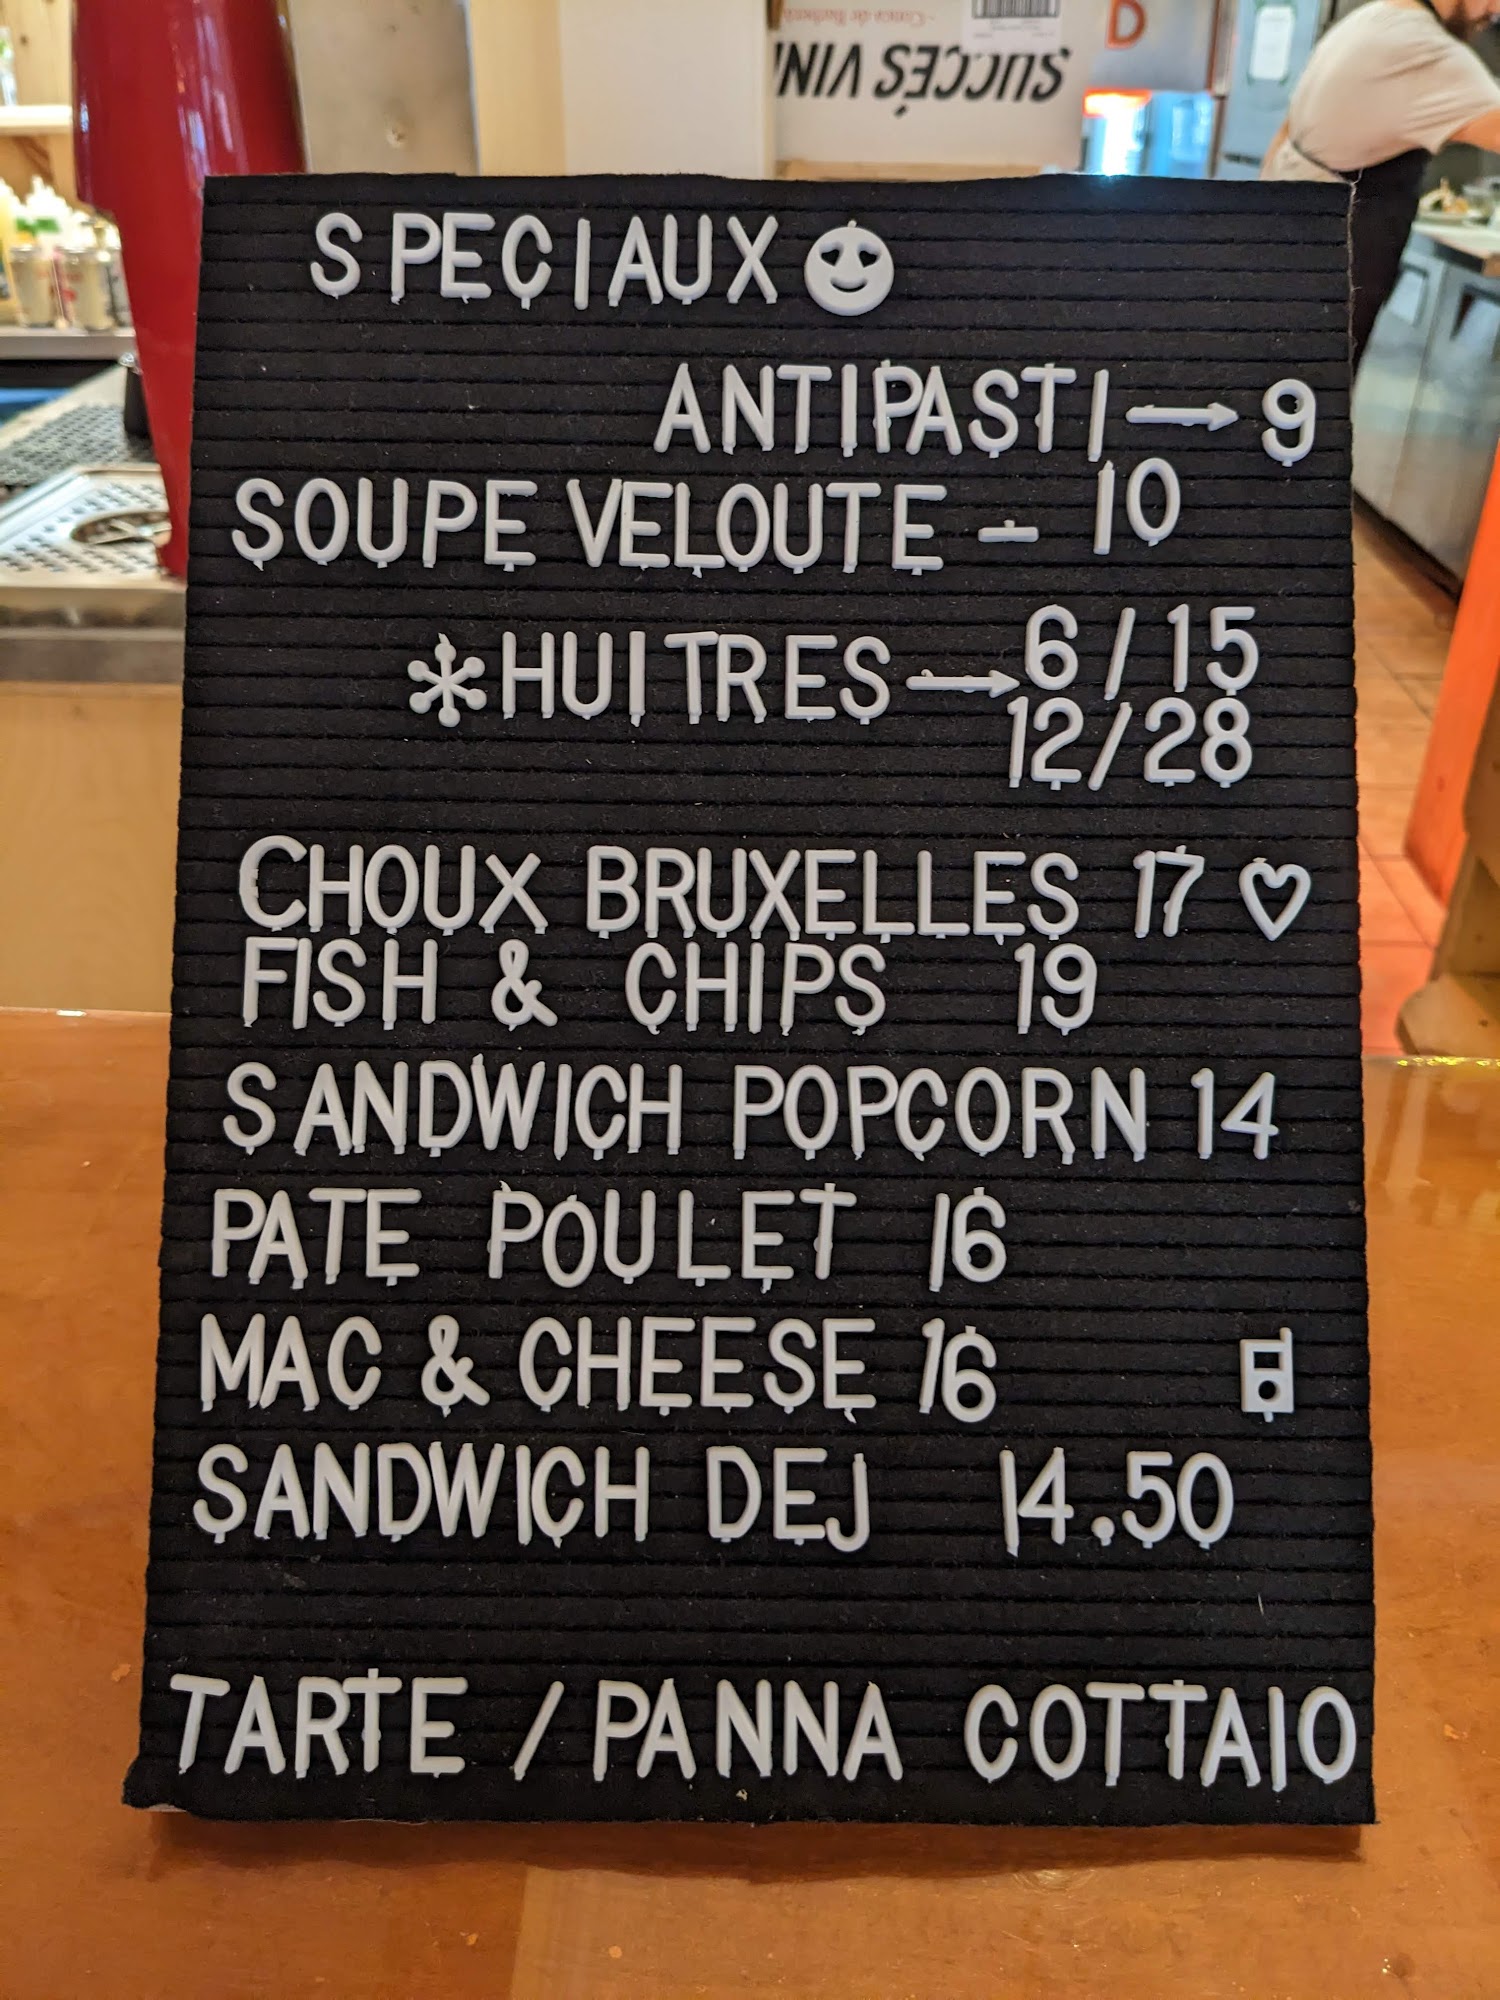 - Conca de Barberà
SUCCÉS VINI
D
SPECIAUX
ANTIPASTI → 9
SOUPE VELOUTE - 10
*HUITRES → 6/15
12/28
CHOUX BRUXELLES 17 ♡
FISH & CHIPS 19
SANDWICH POPCORN 14
PATE POULET 16
MAC & CHEESE 16
SANDWICH DEJ 14.50
TARTE / PANNA COTTA 10